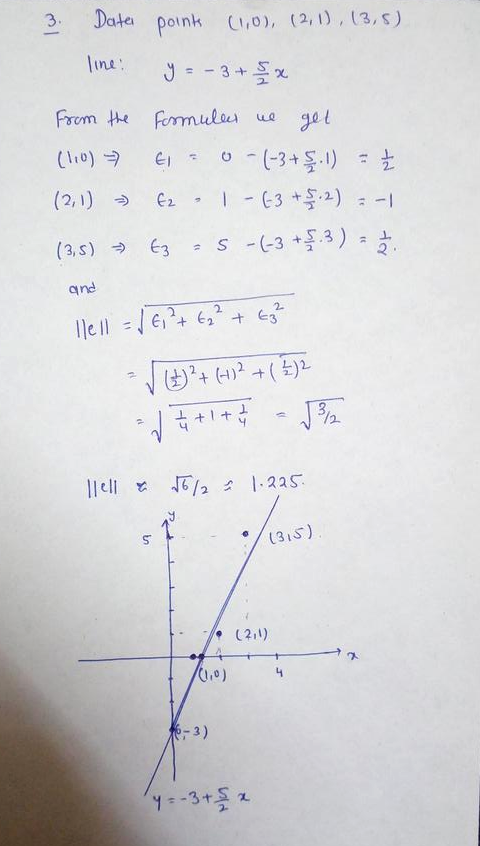 3. Data points (1,0), (2,1), (3,5)
line: y = -3 + 5/2 x
From the Formulas we get
(1,0) ⇒ ϵ1 = 0 - (-3 + 5/2 · 1) = 1/2
(2,1) ⇒ ϵ2 = 1 - (-3 + 5/2 · 2) = -1
(3,5) ⇒ ϵ3 = 5 - (-3 + 5/2 · 3) = 1/2.
and
||e|| = √(ϵ1² + ϵ2² + ϵ3²)
= √((1/2)² + (-1)² + (1/2)²)
= √(1/4 + 1 + 1/4) = √(3/2)
||e|| ≈ √6/2 ≈ 1.225.
y
5
(3,5)
(2,1)
x
(1,0)
4
(0,-3)
y = -3 + 5/2 x